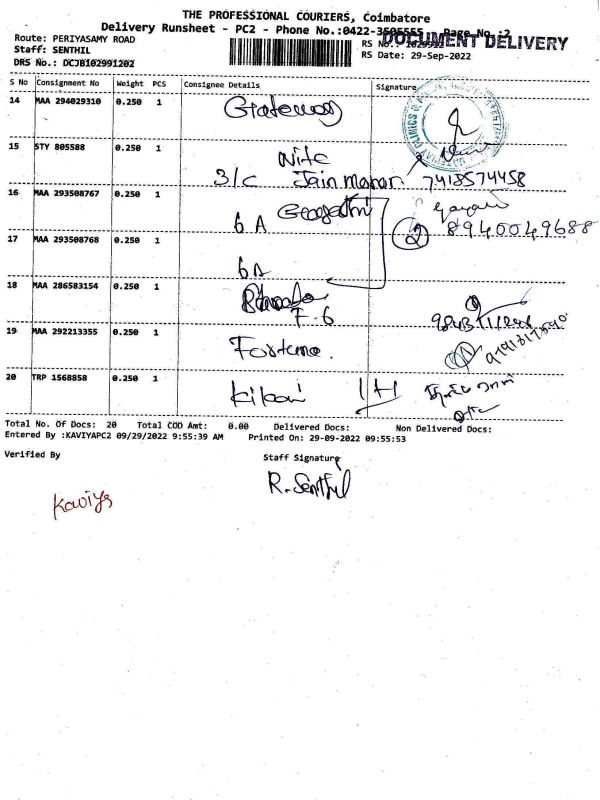 THE PROFESSIONAL COURIERS, Coimbatore
Delivery Runsheet - PC2 - Phone No.:0422-3505555 Page No.:2
DOCUMENT DELIVERY
Route: PERIYASAMY ROAD
RS No.:
Staff: SENTHIL
RS Date: 29-Sep-2022
DRS No.: DCJB102991202
S No Consignment No Weight PCS Consignee Details Signature
14 MAA 294029310 0.250 1 Gateway
15 STY 805588 0.250 1
3/c Jain 7418574458
16 MAA 293508767 0.250 1
6 A 2 8940049688
17 MAA 293508768 0.250 1
6A
18 MAA 286583154 0.250 1
F.6
19 MAA 292213355 0.250 1
Fortune.
20 TRP 1568858 0.250 1
Total No. Of Docs: 20 Total COD Amt: 0.00 Delivered Docs: Non Delivered Docs:
Entered By :KAVIYAPC2 09/29/2022 9:55:39 AM Printed On: 29-09-2022 09:55:53
Verified By Staff Signature
R. Senthil
Kaviya